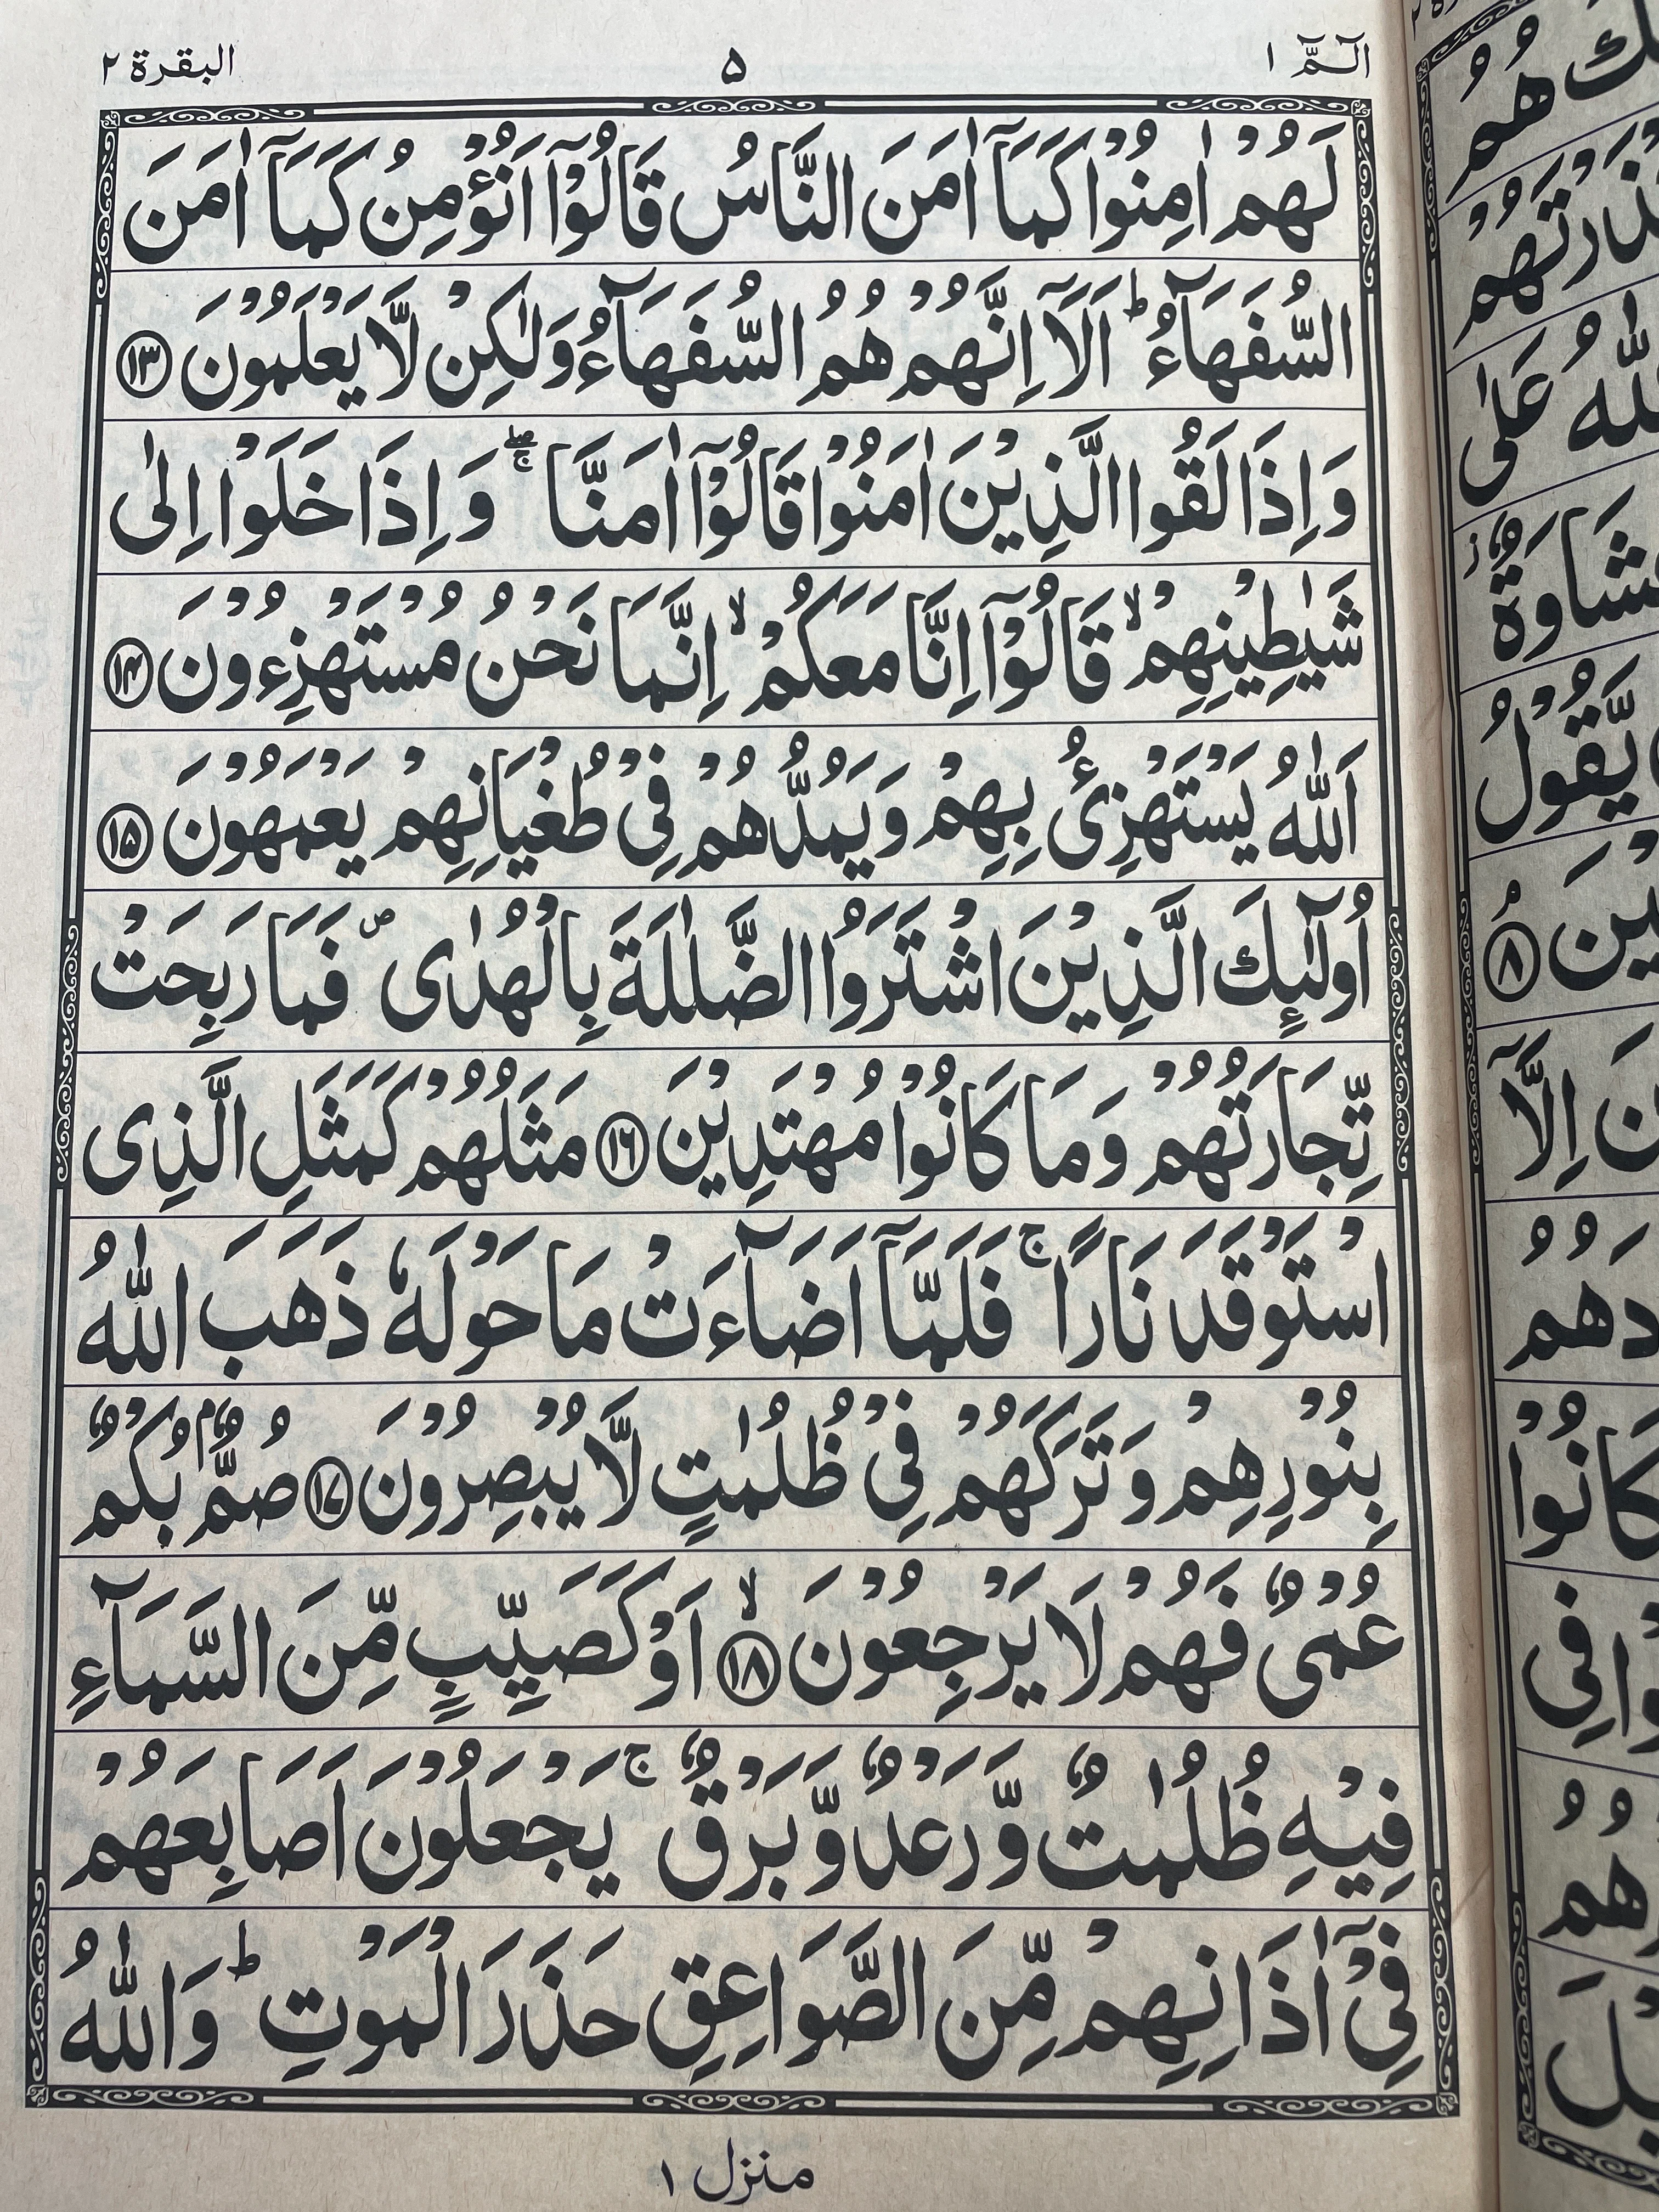 الٓمّٓ ١ ۵ البقرة ٢
لَهُمْ اٰمِنُوْا كَمَآ اٰمَنَ النَّاسُ قَالُوْٓا اَنُؤْمِنُ كَمَآ اٰمَنَ
السُّفَهَآءُ ؕ اَلَآ اِنَّهُمْ هُمُ السُّفَهَآءُ وَلٰكِنْ لَّا يَعْلَمُوْنَ ﴿۱۳﴾
وَاِذَا لَقُوا الَّذِيْنَ اٰمَنُوْا قَالُوْٓا اٰمَنَّا ۖۚ وَاِذَا خَلَوْا اِلٰى
شَيٰطِيْنِهِمْ ۙ قَالُوْٓا اِنَّا مَعَكُمْ ۙ اِنَّمَا نَحْنُ مُسْتَهْزِءُوْنَ ﴿۱۴﴾
اَللّٰهُ يَسْتَهْزِئُ بِهِمْ وَيَمُدُّهُمْ فِيْ طُغْيَانِهِمْ يَعْمَهُوْنَ ﴿۱۵﴾
اُولٰٓئِكَ الَّذِيْنَ اشْتَرَوُا الضَّلٰلَةَ بِالْهُدٰى ۪ فَمَا رَبِحَتْ
تِّجَارَتُهُمْ وَمَا كَانُوْا مُهْتَدِيْنَ ﴿۱۶﴾ مَثَلُهُمْ كَمَثَلِ الَّذِى
اسْتَوْقَدَ نَارًا ۚ فَلَمَّآ اَضَآءَتْ مَا حَوْلَهٗ ذَهَبَ اللّٰهُ
بِنُوْرِهِمْ وَتَرَكَهُمْ فِيْ ظُلُمٰتٍ لَّا يُبْصِرُوْنَ ﴿۱۷﴾ صُمٌّۢ بُكْمٌ
عُمْيٌ فَهُمْ لَا يَرْجِعُوْنَ ۙ﴿۱۸﴾ اَوْ كَصَيِّبٍ مِّنَ السَّمَآءِ
فِيْهِ ظُلُمٰتٌ وَّرَعْدٌ وَّبَرْقٌ ۚ يَجْعَلُوْنَ اَصَابِعَهُمْ
فِيْٓ اٰذَانِهِمْ مِّنَ الصَّوَاعِقِ حَذَرَ الْمَوْتِ ؕ وَاللّٰهُ
منزل ١